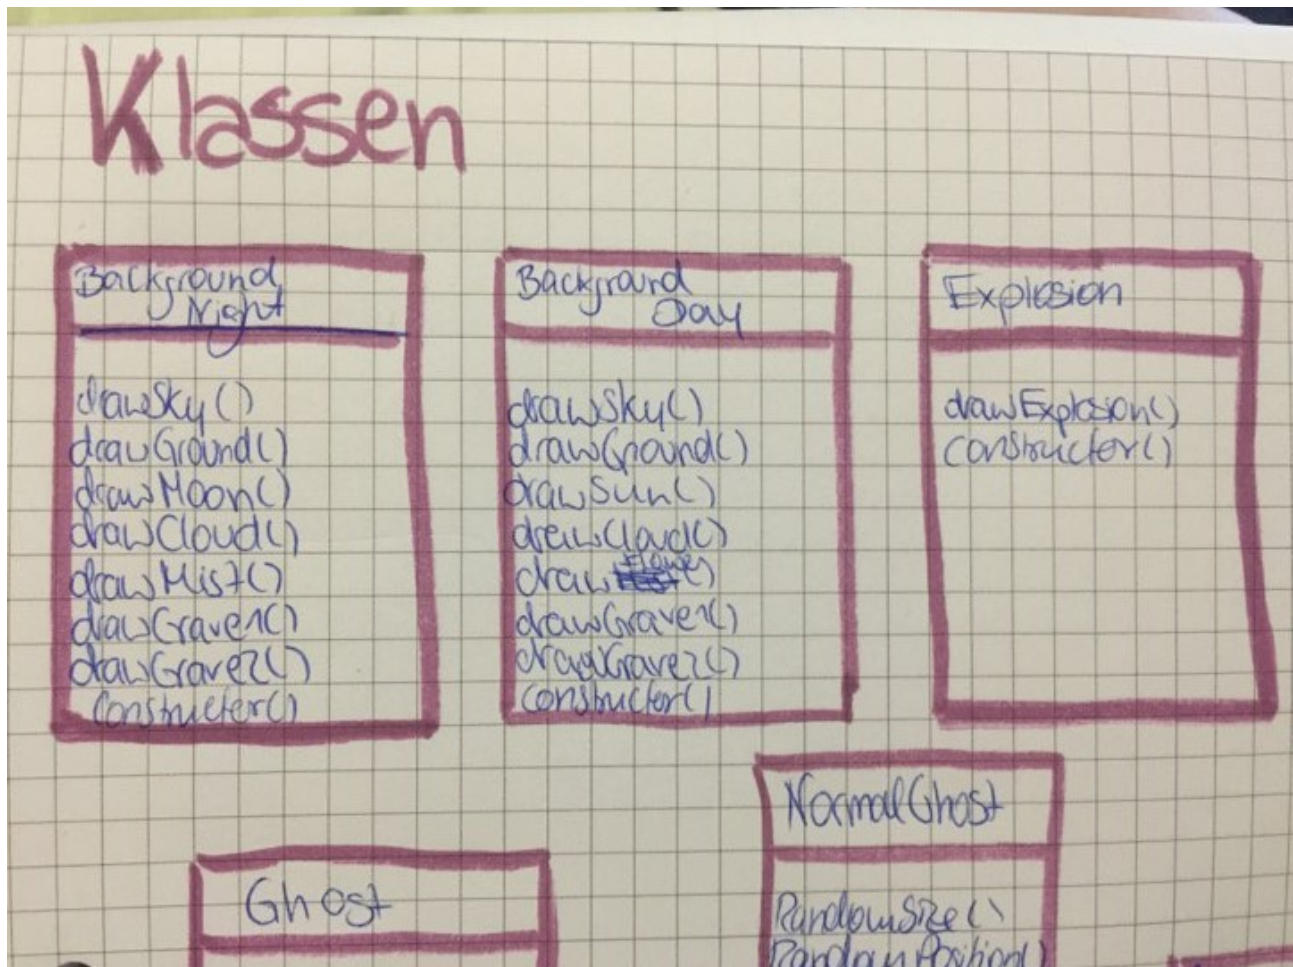 Klassen
Background
Night
drawSky()
drawGround()
drawMoon()
drawCloud()
drawMist()
drawGrave1()
drawGrave2()
constructor()
Background
Day
drawSky()
drawGround()
drawSun()
drawCloud()
draw Flower()
drawGrave1()
drawGrave2()
constructor()
Explosion
drawExplosion()
constructor()
Ghost
NormalGhost
RandomSize()
RandomPosition()